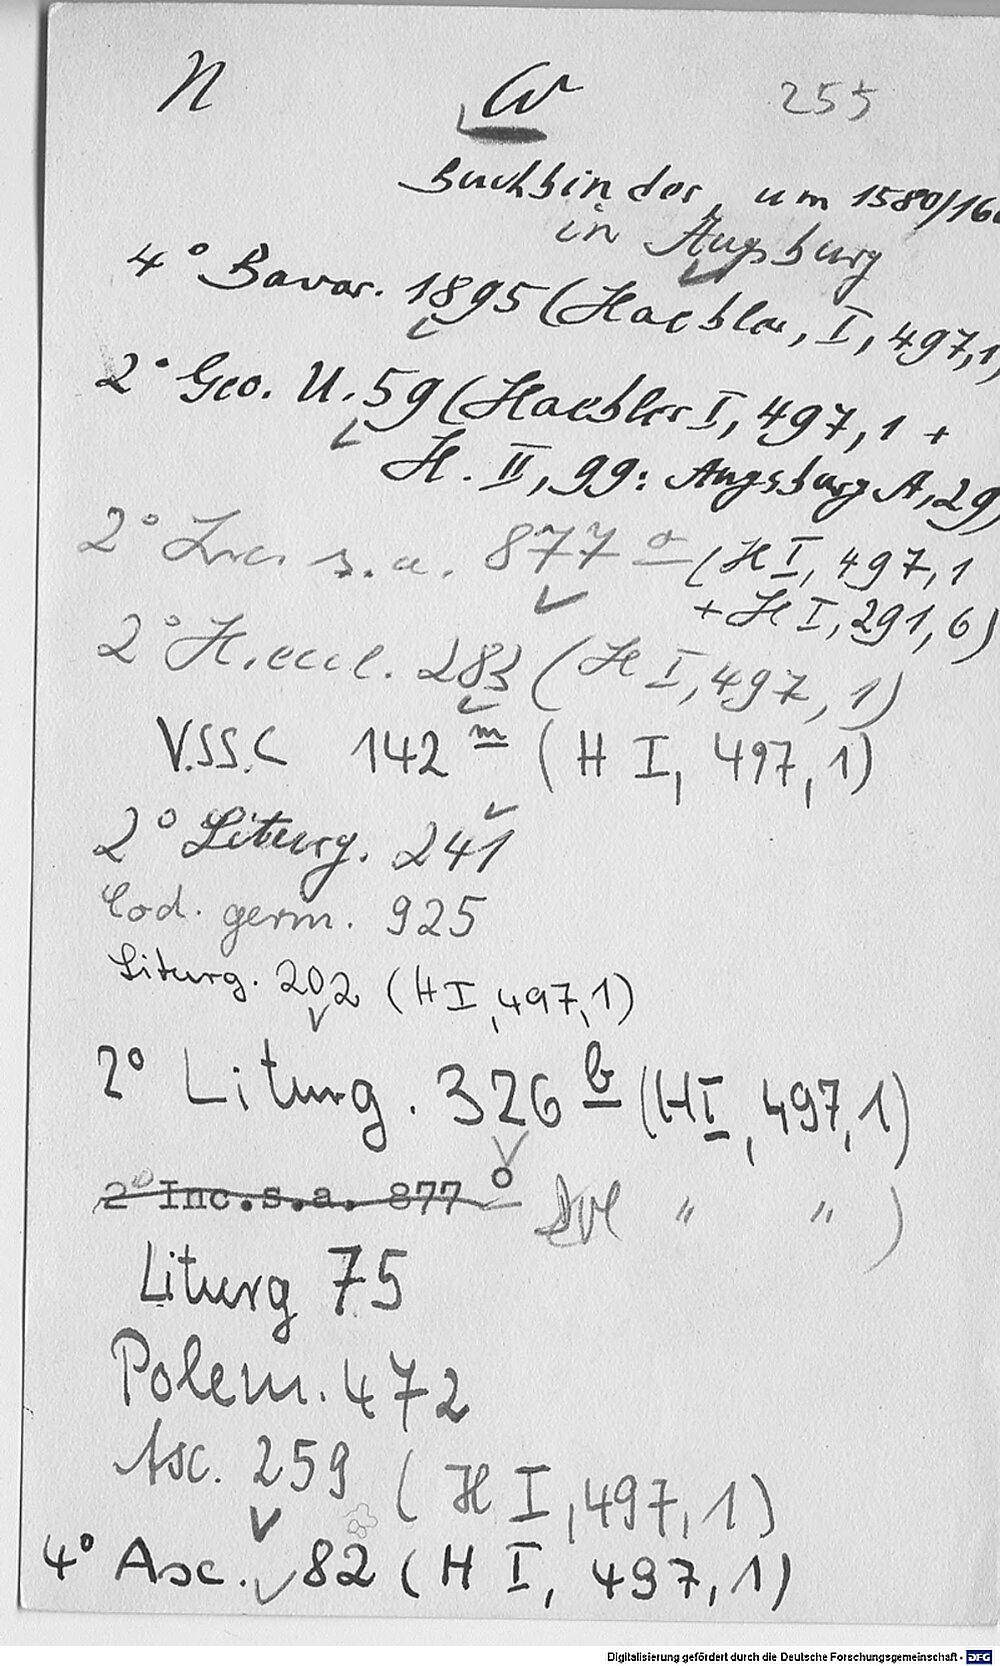 N W 255
Buchbinder, um 1580/160
in Augsburg
4° Bavar. 1895 (Haebler, I, 497,1)
2° Geo. U. 59 (Haebler I, 497,1 +
H. II, 99: Augsburg A, 29)
2° Inc. s.a. 877 o (H I, 497,1
+ H I, 291,6)
2° H.eccl. 283 (H I, 497, 1)
V.SS.C 142 m (H I, 497, 1)
2° Liturg. 241
Cod. germ. 925
Liturg. 202 (H I, 497,1)
2° Liturg. 326 b (H I, 497,1)
2° Inc.s.a. 877 o " " )
Liturg 75
Polem. 472
Asc. 259 (H I, 497, 1)
4° Asc. 82 (H I, 497,1)
Digitalisierung gefördert durch die Deutsche Forschungsgemeinschaft - DFG